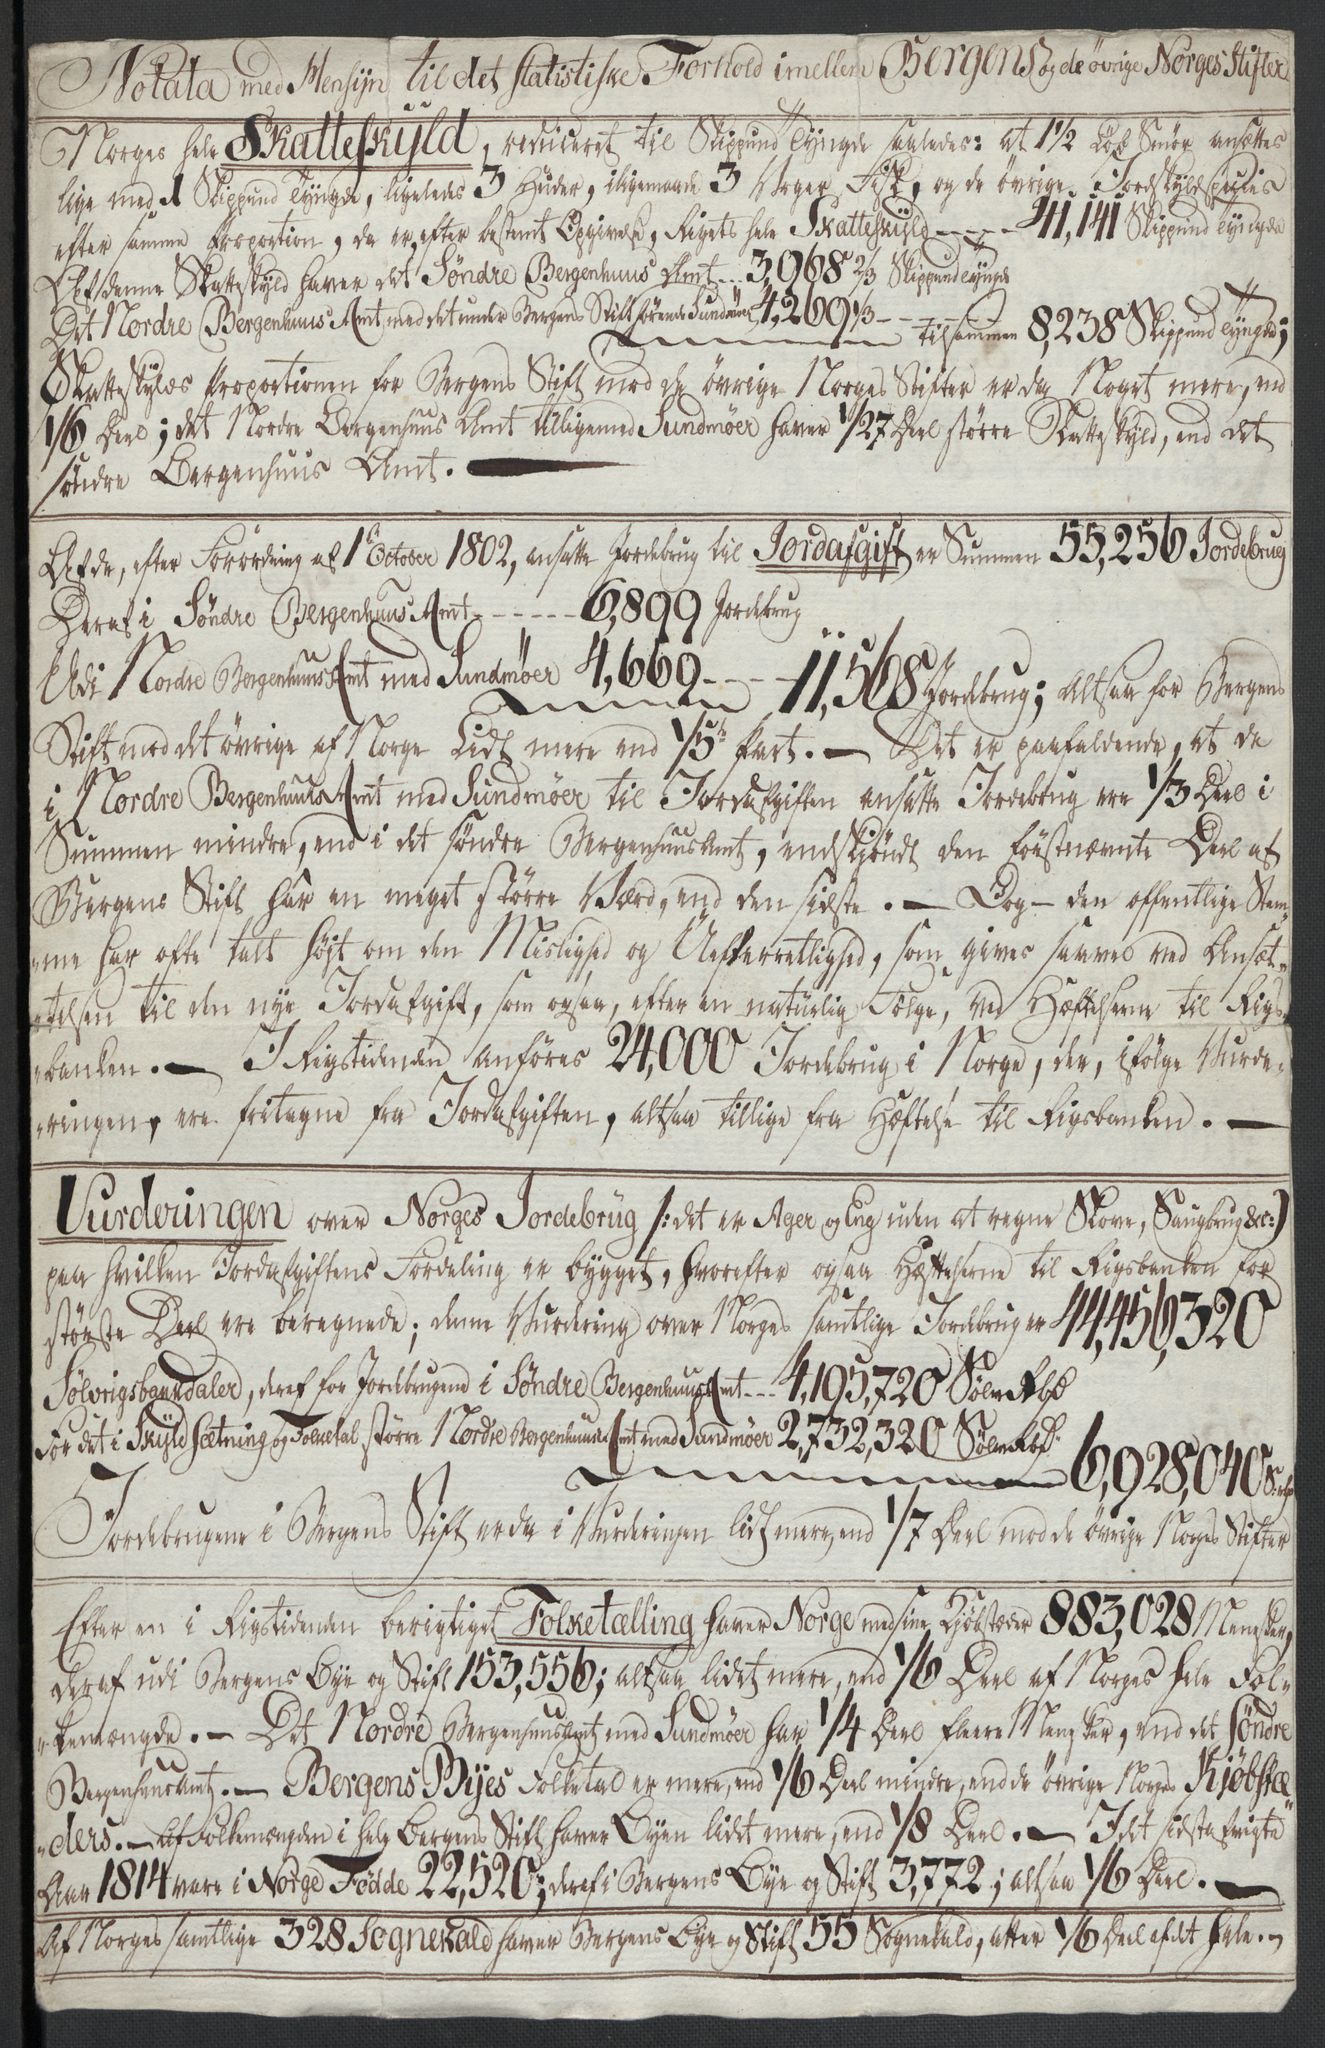 Notata med Hensÿn til det statistiske Forhold imellem Bergens og de övrige Norges Stifter
Norges hele Skatteskÿld, reduceret til Skippund Tyngde saaledes: at 1 1/2 Löb Smör ansættes
lige med 1 Skippund Tyngde, ligeledes 3 Huder, iligemaade 3 Voger Fisk, og de övrige Jordskyldspecies
efter samme Proportion, da er, efter bestemt Opgivelse, Rigets hele Skatteskÿld - - - - 41,141 Skippund Tyngde
Af denne Skatteskyld haver det Søndre Bergenhuus Amt - - - 3,968 2/3 Skippund Tyngde
Det Nordre Bergenhuus Amt med det under Bergens Stift hørende Sundmöer 4,269 1/3 - - - - - - tilsammen 8,238 Skippund Tyngde;
Skatteskylds Proportionen for Bergens Stift mod de övrige Norges Stifter er da Noget mere, end
1/6 Deel; det Nordre Bergenhuus Amt tilligemed Sundmöer haver 1/27 Deel större Skatteskyld, end det
söndre Bergenhuus Amt.
Af de, efter Forordning af 1ste October 1802, ansatte Jordebrug til Jordafgift, er Summen 55,256 Jordebrug
Deraf i Søndre Bergenhuus Amt - - - - - - 6,899 Jordebrug
Udi Nordre Bergenhuus Amt med Sundmøer 4,669 - - - - 11,568 Jordebrug; altsaa for Bergens
Stift mod det övrige af Norge Lidt mere end 1/5te Part. — Det er paafaldende, at de
i Nordre Bergenhuus Amt med Sundmøer til Jordafgiften ansatte Jordebrug ere 1/3 Deel i
Summen mindre, end i det söndre Bergenhuus Amt, endskjöndt den förstnævnte Deel af
Bergens Stift har en meget större Værd, end den sidste. — Dog — den offentlige Stem„
„me har ofte talt højt om den Mislighed og Uefterretlighed, som gives saavel ved Ansæt„
„telsen til den nye Jordafgift, som ogsaa, efter en naturlig Følge, ved Hæftelserne til Rigs„
„banken. — I Rigstidenden anföres 24,000 Jordebrug i Norge, der, ifölge Vurde„
„ringen, ere fritagne fra Jordafgiften, altsaa tillige fra Hæftelse til Rigsbanken. —
Vurderingen over Norges Jordebrüg /: det er Ager og Eng uden at regne Skove, Saugbrug &c: )
paa hvilken Jordafgiftens Fordeling er bygget, hvorefter ogsaa Hæftelserne til Rigsbanken for
störste Deel ere beregnede; denne Vurdering over Norges samtlige Jordebrug er 44,456,320
Sölvrigsbankdaler, deraf for Jordebrugene i Söndre Bergenhuus Amt - - - 4,195,720 Sölv Rbd
For det i Skÿldsætning og Folketal större Nordre Bergenhuus Amt med Sundmøer 2,732,320 Sölv Rbd.
6,928,040 S: rbd
Jordebrugene i Bergens Stift er da i Vurderingen lidt mere, end 1/7 Deel mod de övrige Norges Stifter
Efter en i Rigstidenden berigtiget Folketælling haver Norge med sine Kjöbstæder 883,028 Mennesker,
deraf udi Bergens Bye og Stift 153,556; altsaa lidet mere, end 1/6 Deel af Norges hele Fol„
„kemængde. — Det Nordre Bergenhuus Amt med Sundmøer har 1/4 Deel fleere Mennesker, end det söndre
Bergenhuus Amt. — Bergens Byes Folketal er mere, end 1/6 Deel mindre, end de övrige Norges Kjøbstæ„
„ders. — Af Folkemængden i hele Bergens Stift haver Byen lidet mere, end 1/8 Deel. — I det sidst afvigte
Aar 1814 vare i Norge Fødde 22,520; deraf i Bergens Bye og Stift 3,772; altsaa 1/6 Deel. —
Af Norges samtlige 328 Sognekald haver Bergens Bye og Stift 55 Sognekald, atter 1/6 Deel af det hele. —